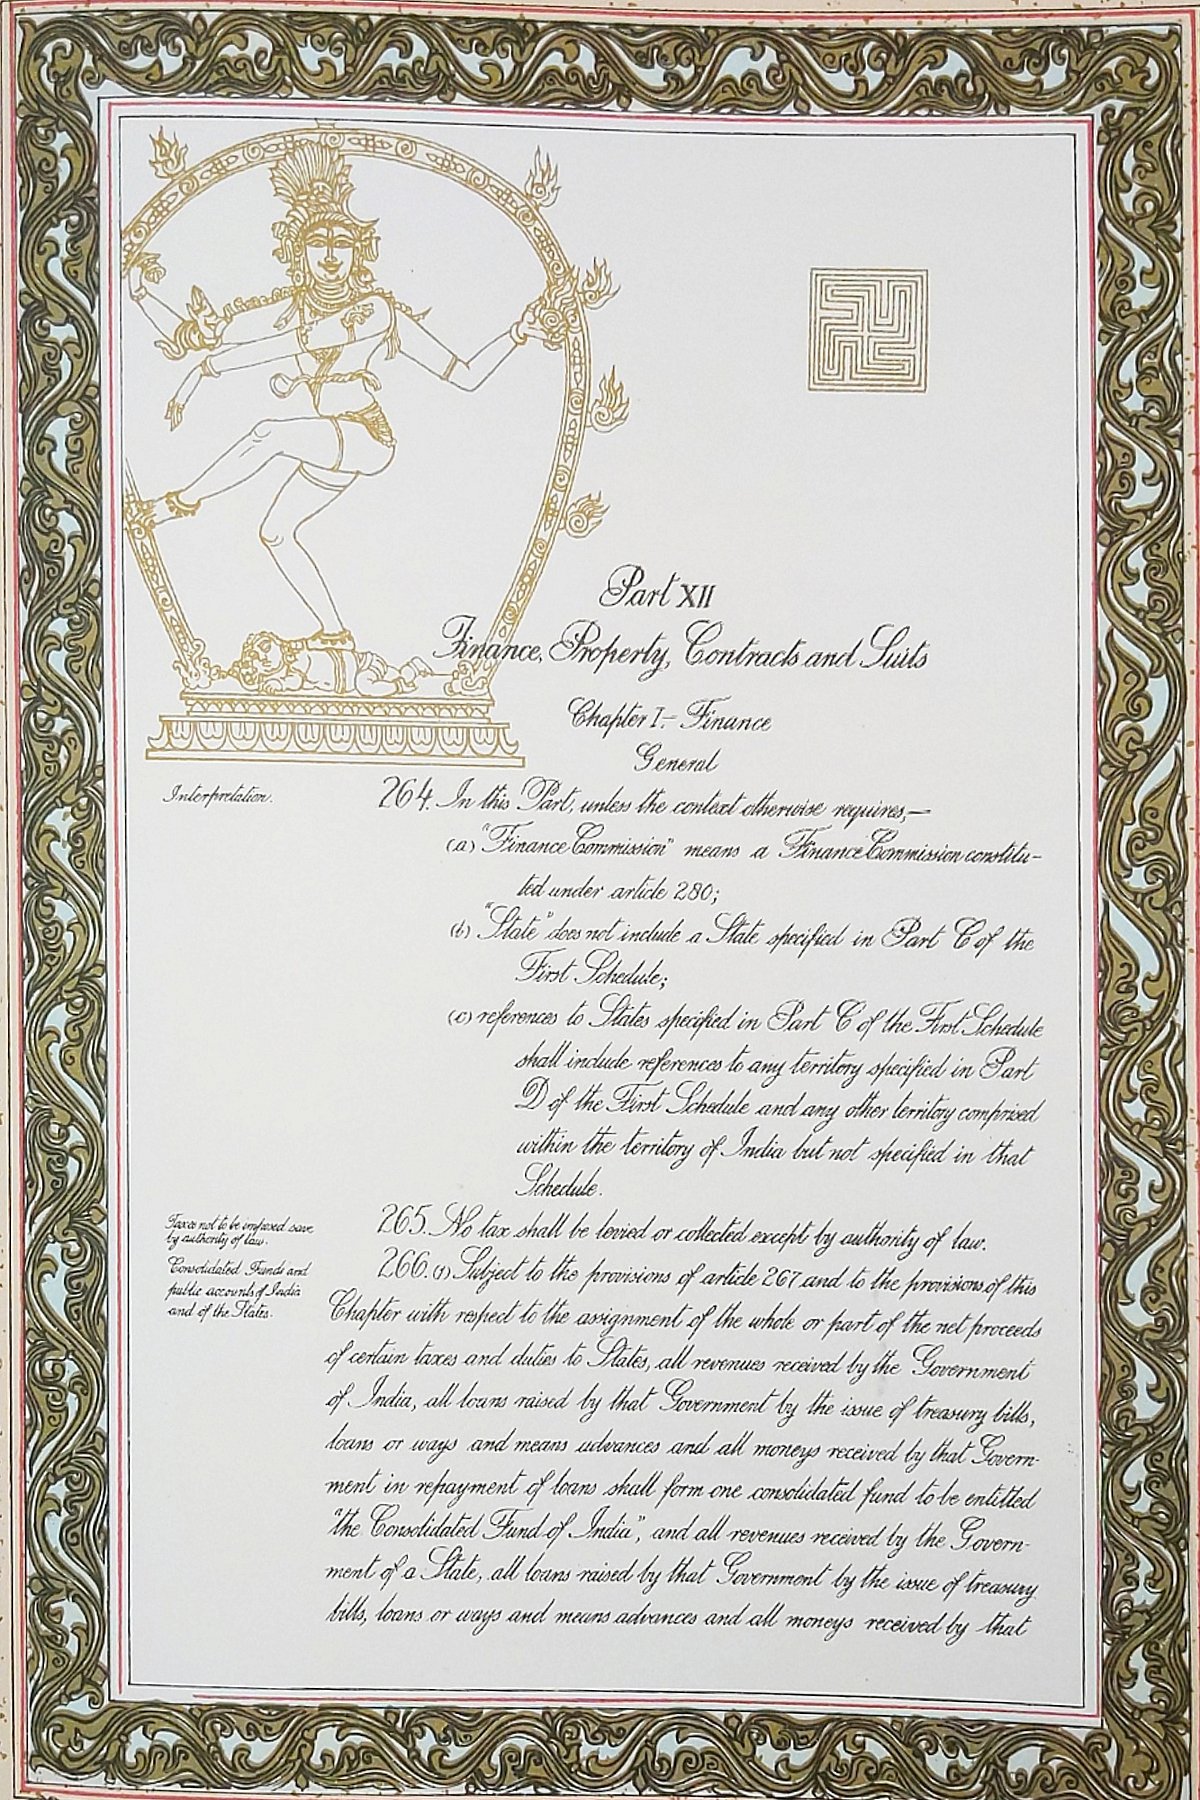 Part XII
Finance, Property, Contracts and Suits
Chapter I.- Finance
General
Interpretation.
264. In this Part, unless the context otherwise requires,—
(a) "Finance Commission" means a Finance Commission constitu-
ted under article 280;
(b) "State" does not include a State specified in Part C of the
First Schedule;
(c) references to States specified in Part C of the First Schedule
shall include references to any territory specified in Part
D of the First Schedule and any other territory comprised
within the territory of India but not specified in that
Schedule.
Taxes not to be imposed save
by authority of law.
265. No tax shall be levied or collected except by authority of law.
Consolidated Funds and
public accounts of India
and of the States.
266. (1) Subject to the provisions of article 267 and to the provisions of this
Chapter with respect to the assignment of the whole or part of the net proceeds
of certain taxes and duties to States, all revenues received by the Government
of India, all loans raised by that Government by the issue of treasury bills,
loans or ways and means advances and all moneys received by that Govern-
ment in repayment of loans shall form one consolidated fund to be entitled
"the Consolidated Fund of India", and all revenues received by the Govern-
ment of a State, all loans raised by that Government by the issue of treasury
bills, loans or ways and means advances and all moneys received by that